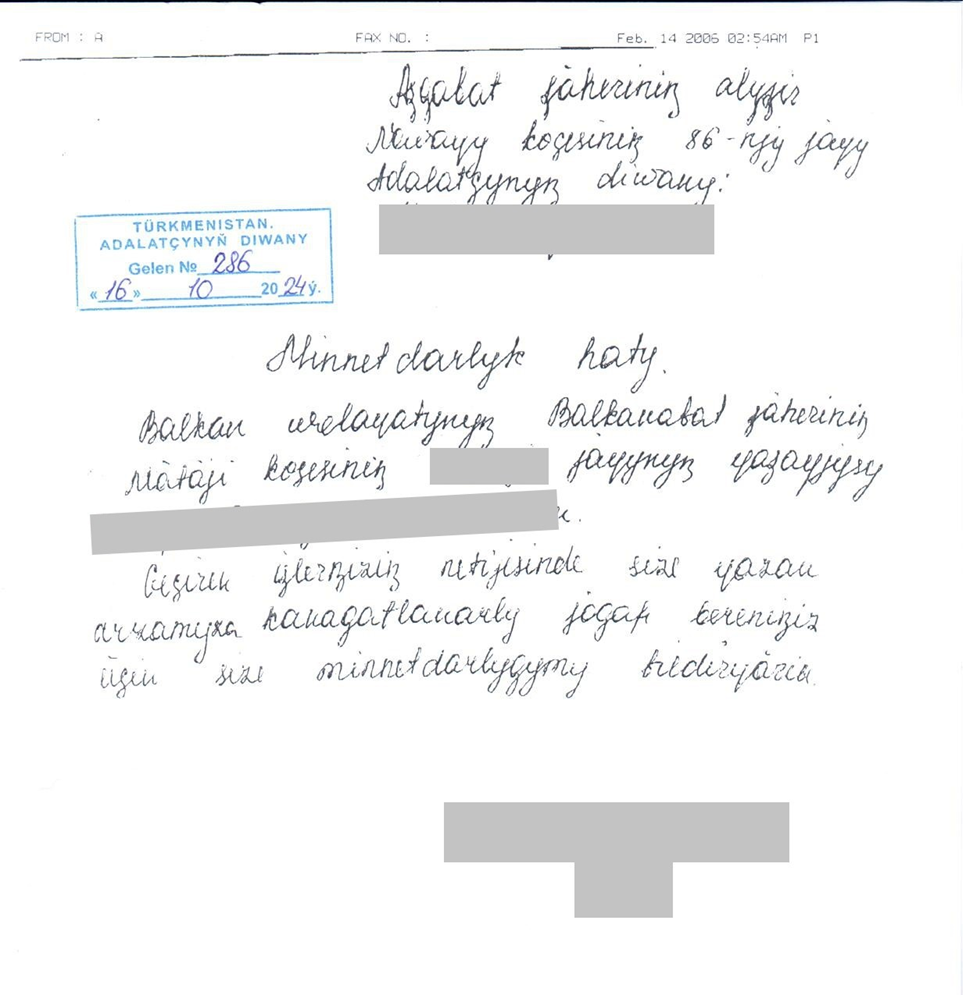 FROM : A FAX NO. : Feb. 14 2006 02:54AM P1
Aşgabat şäheriniň
Nowaýy köçesiniň 86-njy jaýy
Adalatçynyň diwany:
TÜRKMENISTAN.
ADALATÇYNYŇ DIWANY
Gelen № 286
«16» 10 2024 ý.
Minnetdarlyk haty.
Balkan welaýatynyň Balkanabat şäheriniň
Mätäji köçesiniň jaýynyň ýaşaýjysy
Geçiren işleriňiziň netijesinde size ýazan
arzamyza kanagatlanarly jogap bereniňiz
üçin size minnetdarlygymy bildirýärin.